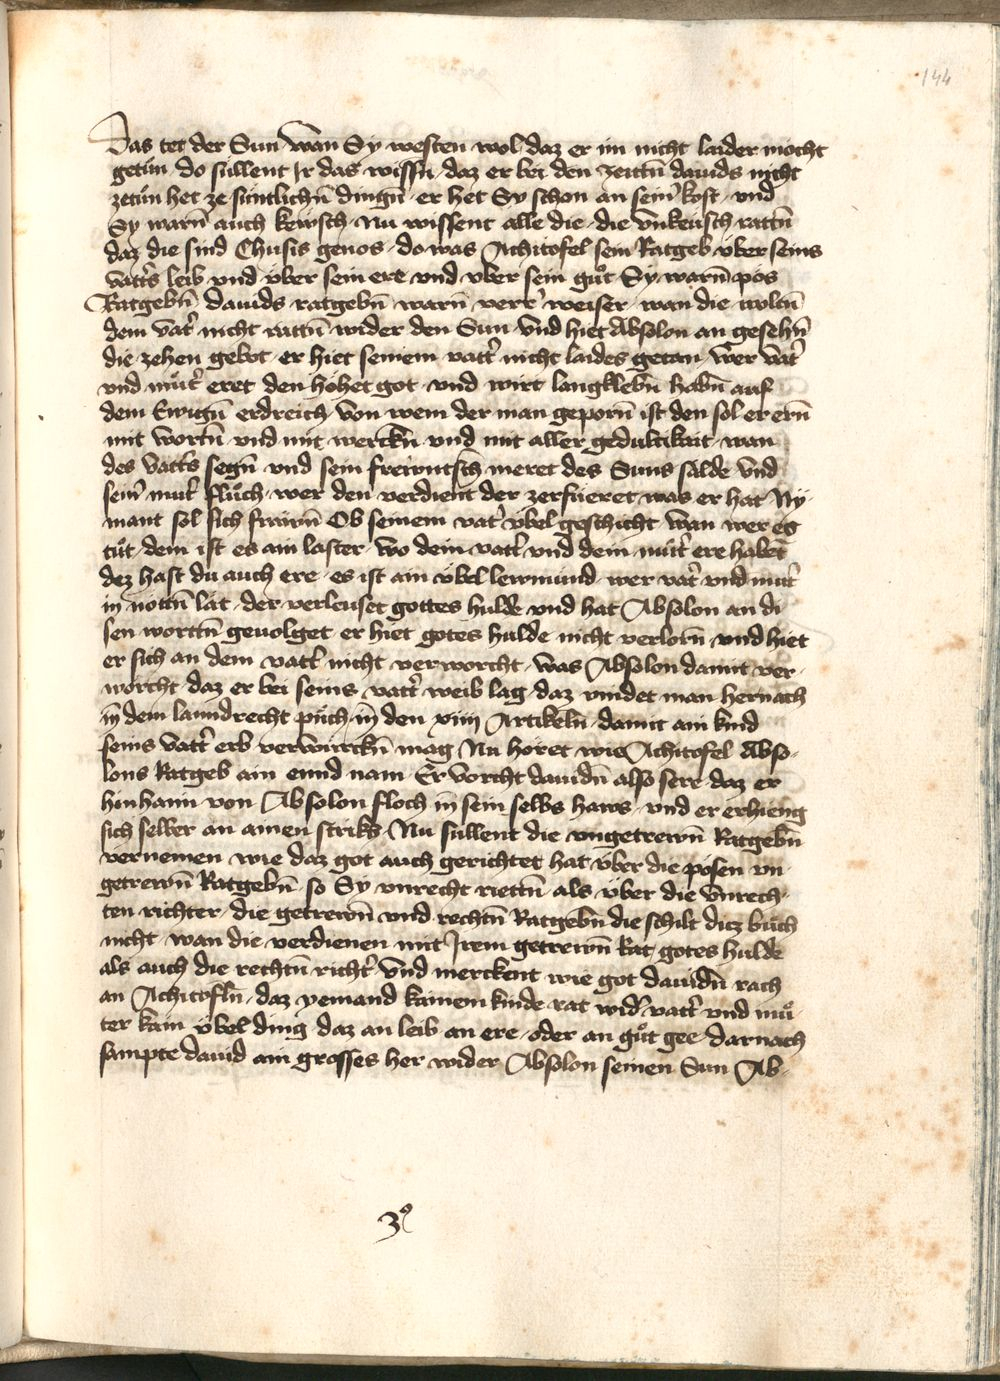 144
Das tet der Sun wan Sy westen wol daz er im nicht laider mocht
getůn do süllent Ir das wissn̄ daz er bei den zeitn̄ dauids nicht
zetůn het ze süntlichn̄ dingn̄ · er het Sy schon an seinr̄ kost · vnd
Sy warn̄ auch kewsch · Nu wissent alle die · die vnkeusch rattn̄
daz die sind Chusis genos · do was Achitofel sein Ratgeb vber seins
vatt̄s leib vnd vber sein ere vnd vber sein gůt Sy warn̄ pos
Ratgebn̄ dauids ratgebn̄ warn̄ verr̄ weiser · wan die woltn̄
dem vat̄ nicht rattn̄ wider den Sun · vnd hiet Absolon an gesehn̄
die zehen gebot · er hiet seinem vatt̄ nicht laides getan · wer vat̄
vnd můt̄ eret den höhet got · vnd wirt langklebn̄ habn̄ auf
dem Ewign̄ erdreich von wem der man geporn̄ ist den sol er ern̄
mit wortn̄ vnd mit werckn̄ vnd mit aller gedultikait · wan
des vatt̄s segn̄ vnd sein freiwntsch̄ meret des Suns sälde vnd
seinr̄ mut̄ flůch · wer den verdient der zerfüeret was er hat Ny-
mant sol sich frawn̄ Ob seinem vat̄ vbel geschicht wan wer es
tůt · dem ist es ain laster · wo dein vatt̄ vnd dein mut̄ ere habēt
dez hast du auch ere · es ist ain vbel lewmund wer vat̄ vnd mut̄
in nöttn̄ lat · der verleuset gottes hulde vnd hat Absolon an di
sen worttn̄ geuolget er hiet gotes hulde nicht verlorn̄ vnd hiet
er sich an dem vatt̄ nicht verworcht · was Absolon damit ver-
worcht · daz er bei seins vatt̄ weib lag · daz vindet man hernach
in dem lanndrecht půch · in den xiiij Artikeln̄ · damit ain kind
seins vatt̄ erb verwürckn̄ mag Nu höret wie Achitofel Abso-
lons Ratgeb ain ennd nam · Er vorcht dauidn̄ also sere daz er
hin haim von Absolon floch in sein selbs haws · vnd er erhieng
sich selber an ainen strikh Nu süllent die vngetrewn̄ Ratgebn̄
vernemen wie daz got auch gerichtet hat vber die pösen vn
getrewn̄ Ratgebn̄ · so Sy vnrecht riettn̄ als vber die vnrech-
ten richter · die getrewn̄ vnd rechtn̄ Ratgebn̄ die schilt ditz bůch
nicht · wan die verdienen mit Irem getrewn̄ Rat gotes hulde
als auch die rechtn̄ richt̄ vnd merckent wie got dauidn̄ rach
an Achitofln̄ · daz yemand kainem kinde rat wid̄ vatt̄ vnd mů-
ter kain vbel ding · daz an leib an ere · oder an gůt gee darnach
sampte dauid ain grosses her wider Absolon seinen Sun Ab-
3⁹